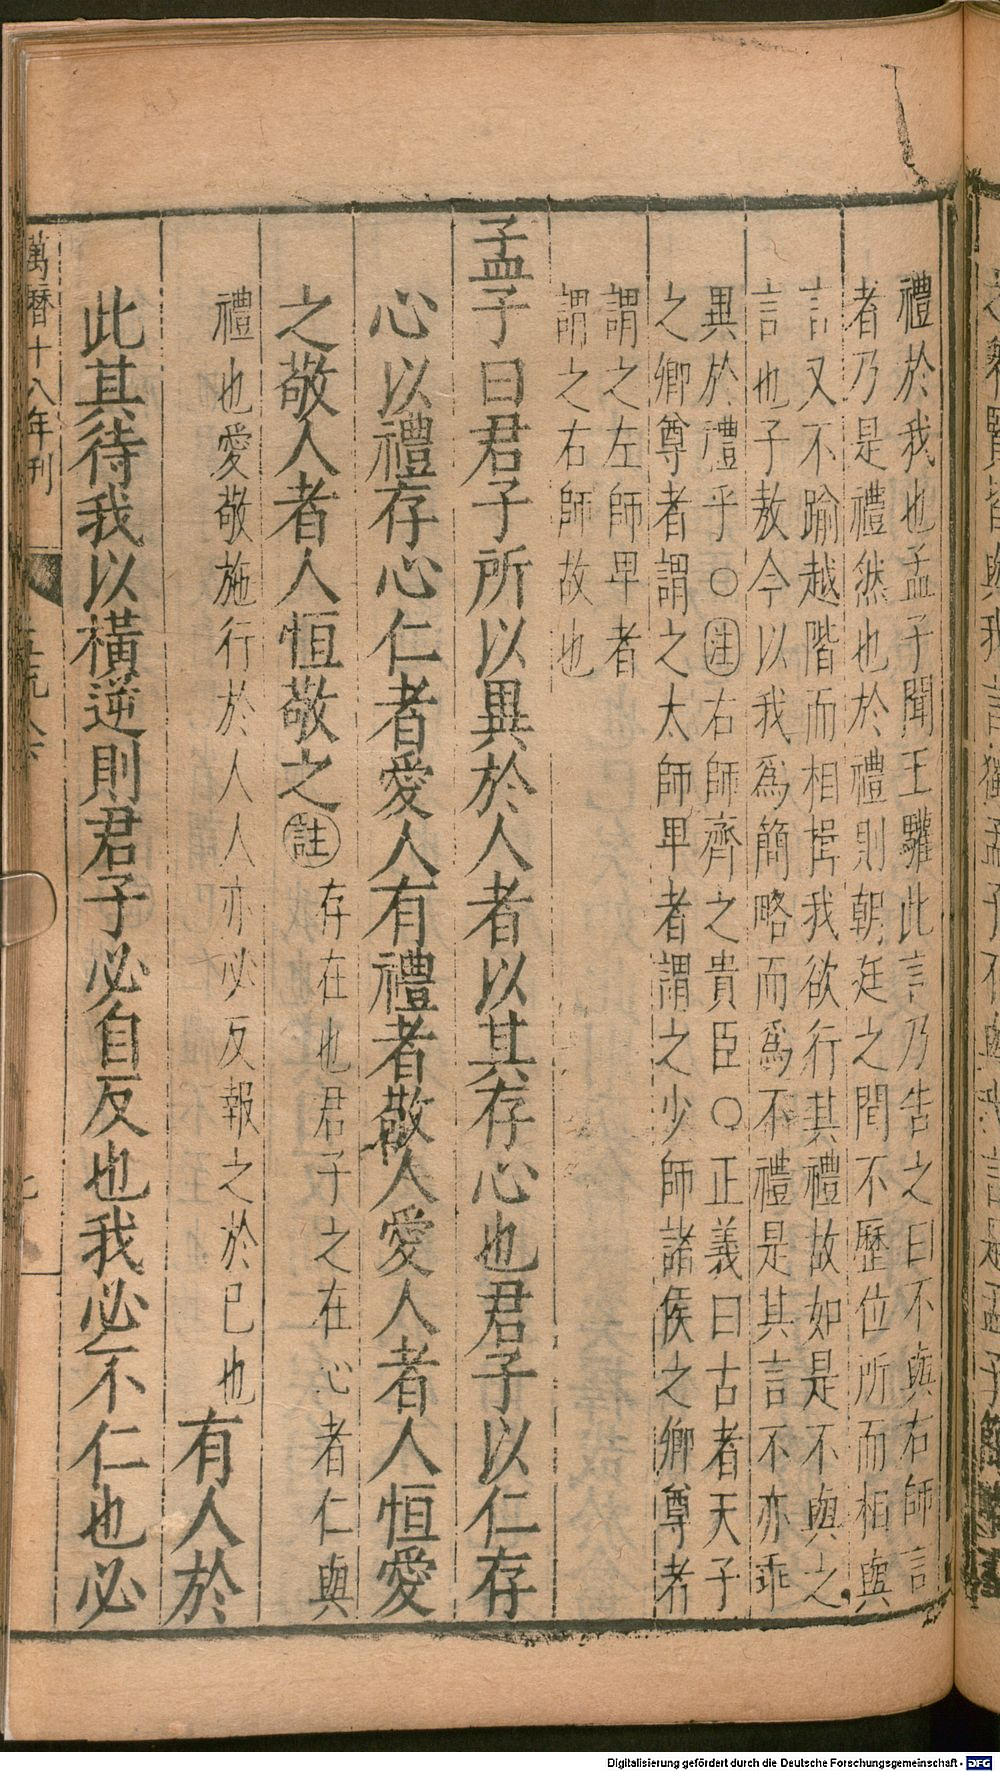 禮於我也孟子聞王驩此言乃告之曰不與右師言
者乃是禮然也於禮則朝廷之間不歷位所而相與
言又不踰越階而相揖我欲行其禮故如是不與之
言也子敖今以我爲簡略而爲不禮是其言不亦乖
異於禮乎○注右師齊之貴臣○正義曰古者天子
之卿尊者謂之太師甲者謂之少師諸侯之卿尊者
謂之左師甲者
謂之右師故也
孟子曰君子所以異於人者以其存心也君子以仁存
心以禮存心仁者愛人有禮者敬人愛人者人恒愛
之敬人者人恒敬之註存在也君子之在心者仁與
禮也愛敬施行於人人亦必反報之於已也有人於
此其待我以橫逆則君子必自反也我必不仁也必
萬曆十八年刊
Digitalisierung gefördert durch die Deutsche Forschungsgemeinschaft - DFG